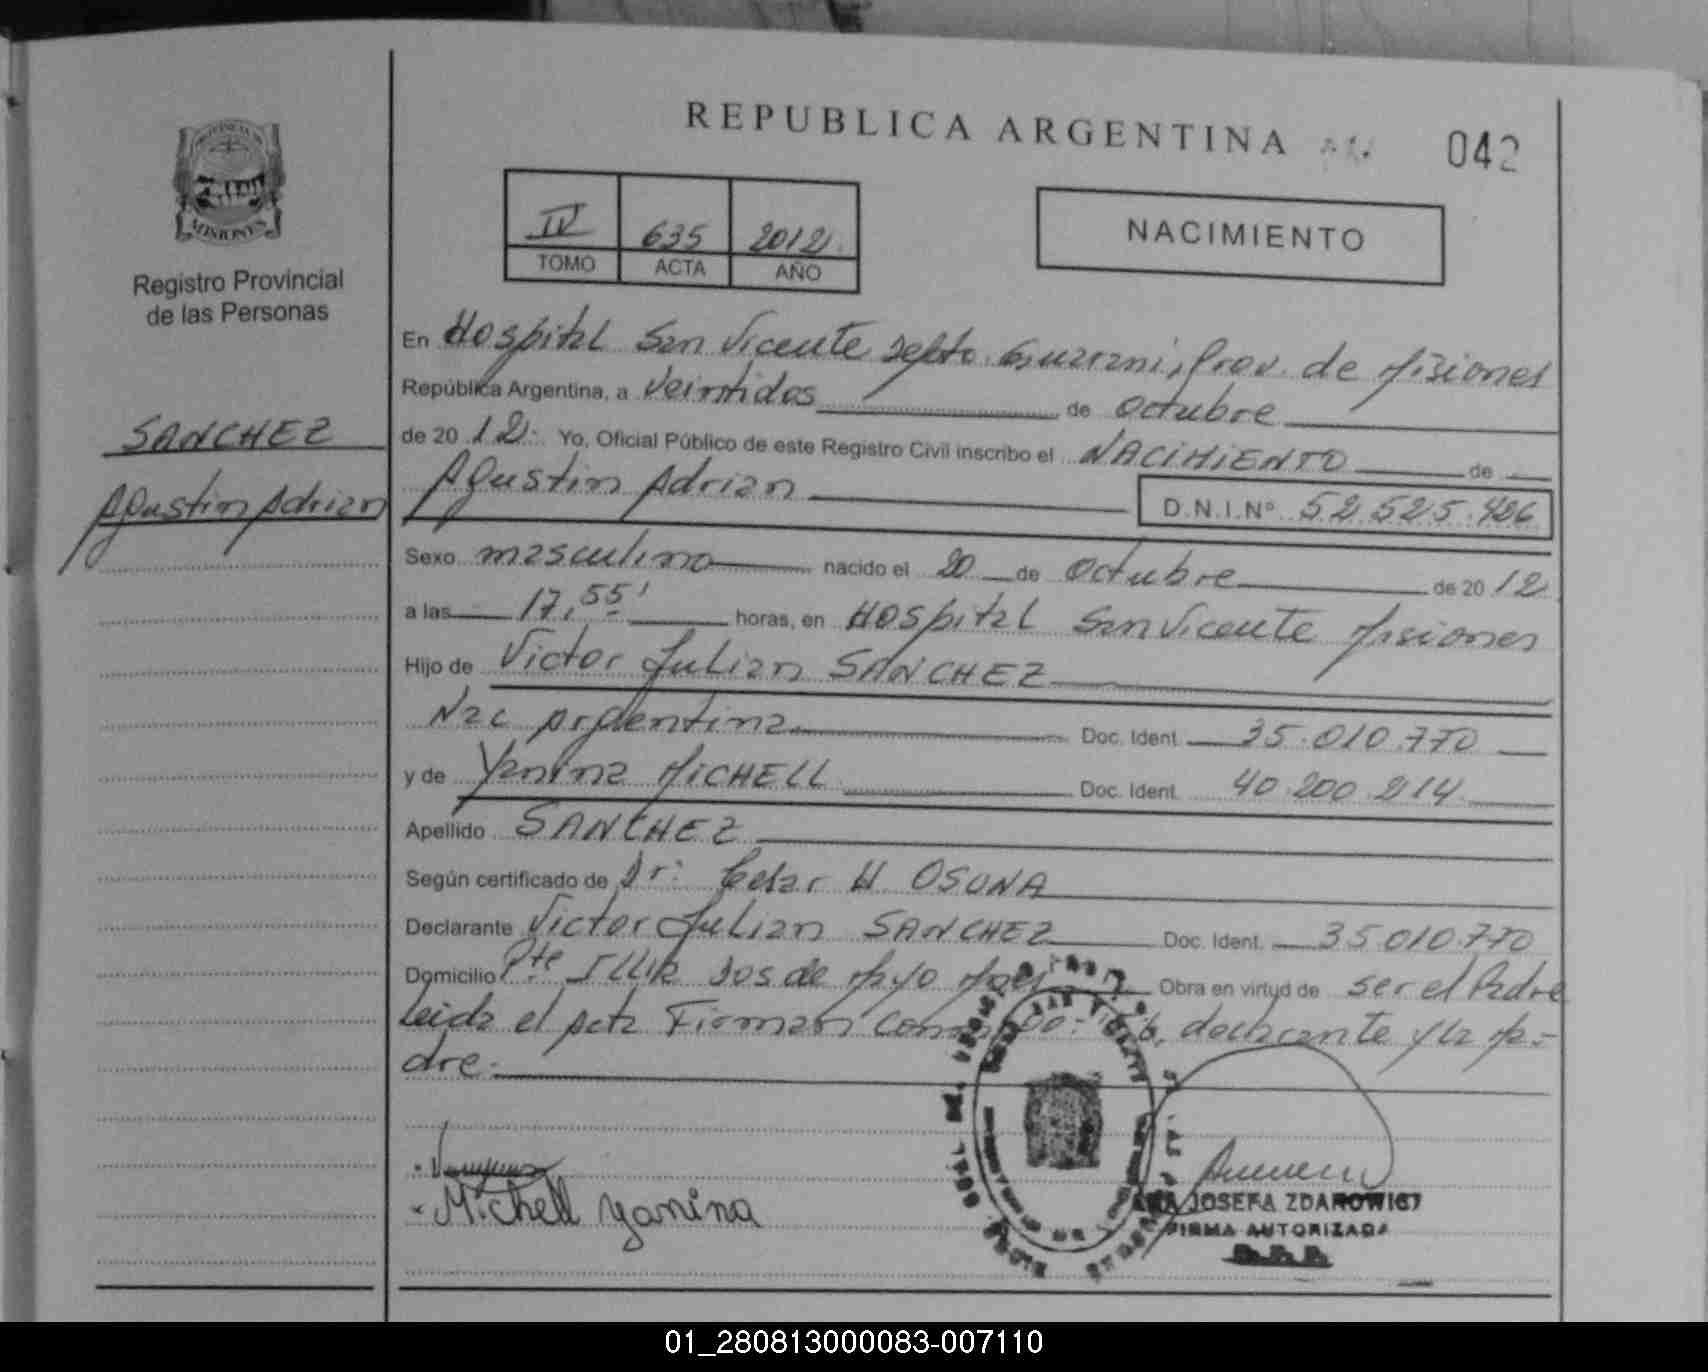 REPUBLICA ARGENTINA
042
MISIONES
Registro Provincial
de las Personas
IV 635 2012
TOMO ACTA AÑO
NACIMIENTO
SANCHEZ
Agustin Adrian
En Hospital San Vicente Depto. Guarani, Prov. de Misiones
República Argentina, a Veintidos de Octubre
de 2012. Yo, Oficial Público de este Registro Civil inscribo el NACIMIENTO de
Agustin Adrian D.N.I.Nº 52.525.426
Sexo masculino nacido el 20 de Octubre de 2012
a las 17,55' horas, en Hospital San Vicente Misiones
Hijo de Victor Julian SANCHEZ
Nac Argentina Doc. Ident. 35.010.770
y de Yanina MICHELL Doc. Ident. 40.200.214
Apellido SANCHEZ
Según certificado de Dr: Cesar H OSUNA
Declarante Victor Julian SANCHEZ Doc. Ident. 35.010.770
Domicilio Pte Illia 2 de Mayo Obra en virtud de ser el Padre
Leida el acta Firman declarante y la Ma-
dre.
Michell Yanina
JOSEFA ZDANOWICZ
FIRMA AUTORIZADA
01_280813000083-007110